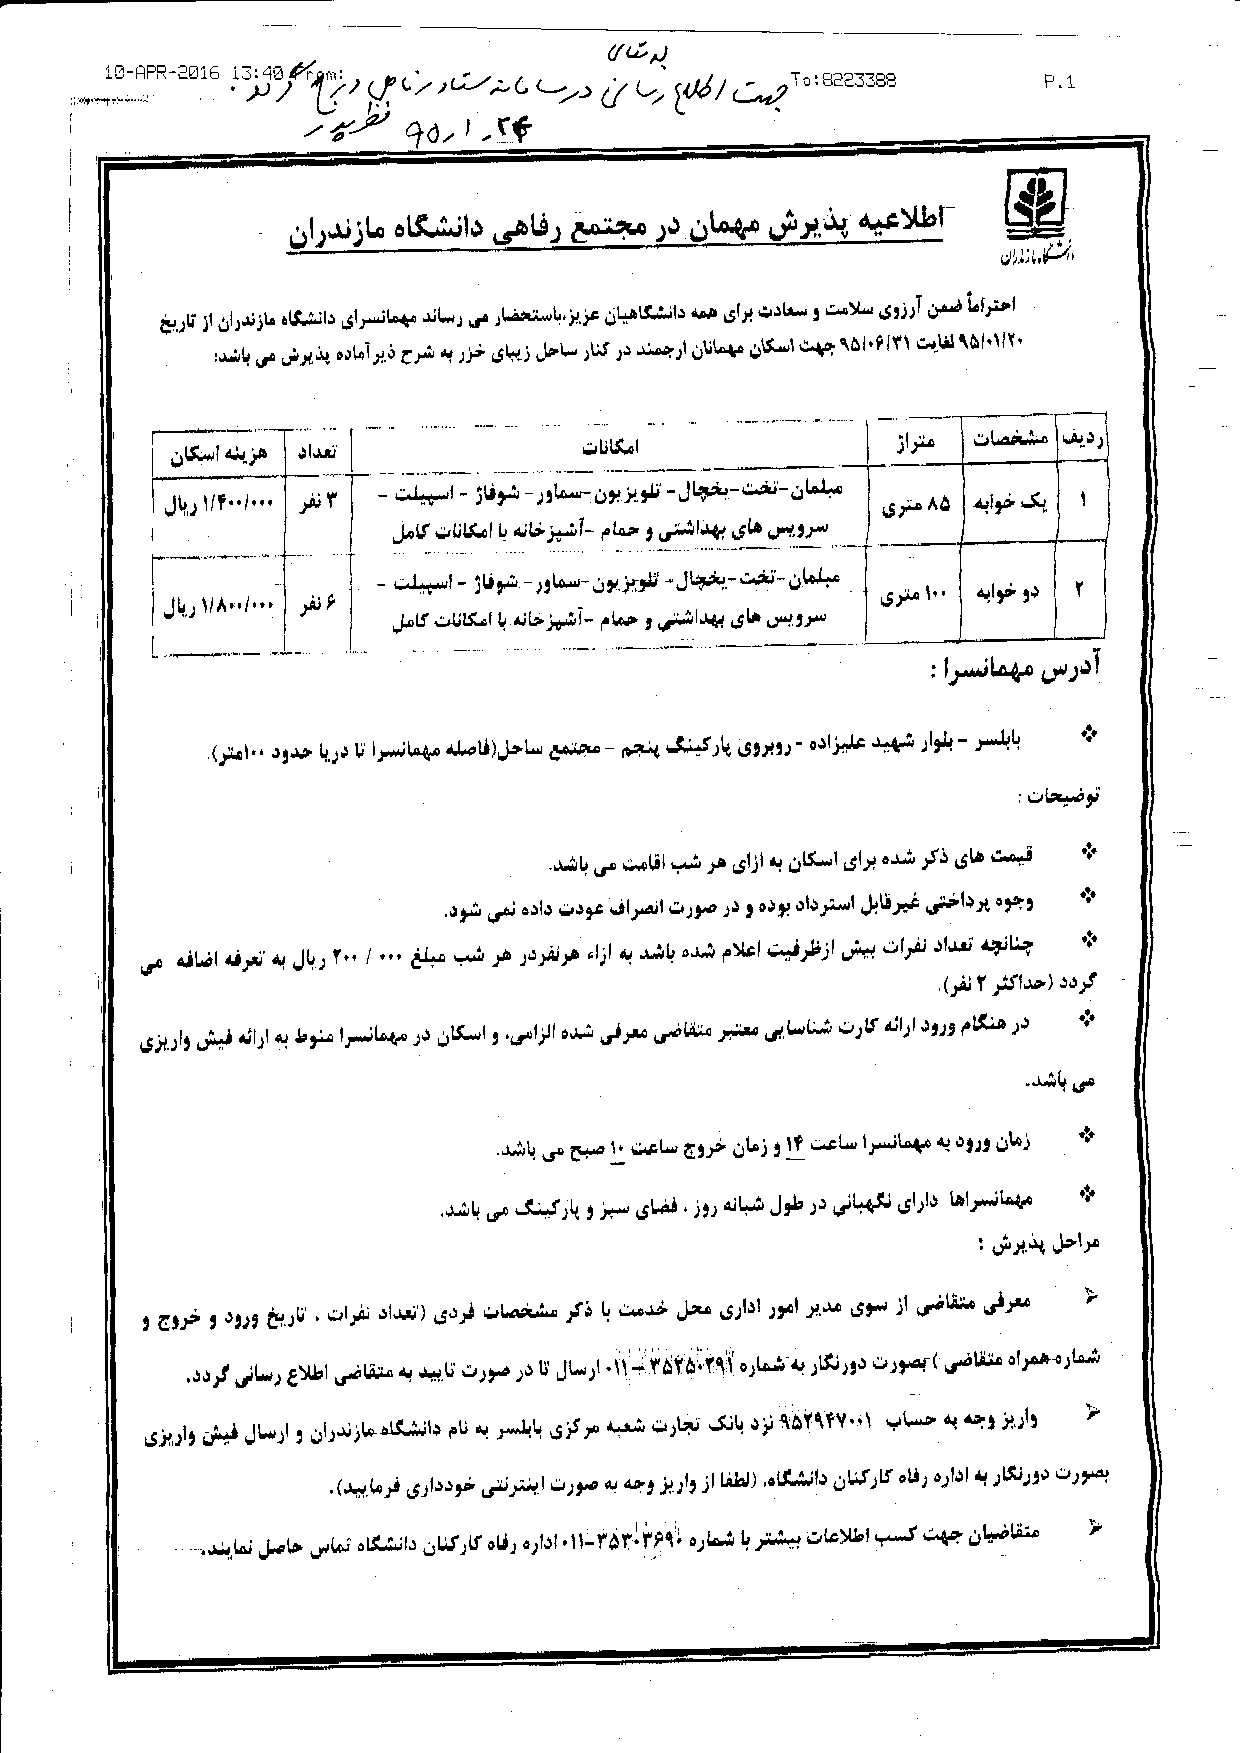 بدهقان
10-APR-2016 13:40 From: To:8223388 P.1
جهت اطلاع رسانی در سامانه ستاد و مناطق درج گردد.
۹۵/۱/۲۴
دانشگاه مازندران
اطلاعیه پذیرش مهمان در مجتمع رفاهی دانشگاه مازندران
احتراماً ضمن آرزوی سلامت و سعادت برای همه دانشگاهیان عزیز،باستحضار می رساند مهمانسرای دانشگاه مازندران از تاریخ
۹۵/۰۱/۲۰ لغایت ۹۵/۰۶/۳۱ جهت اسکان مهمانان ارجمند در کنار ساحل زیبای خزر به شرح ذیر آماده پذیرش می باشد:
ردیف مشخصات متراژ امکانات تعداد هزینه اسکان
۱ یک خوابه ۸۵ متری مبلمان-تخت-یخچال- تلویزیون-سماور- شوفاژ - اسپیلت - ۳ نفر ۱/۴۰۰/۰۰۰ ریال
سرویس های بهداشتی و حمام -آشپزخانه با امکانات کامل
۲ دو خوابه ۱۰۰ متری مبلمان-تخت-یخچال- تلویزیون-سماور- شوفاژ - اسپیلت - ۶ نفر ۱/۸۰۰/۰۰۰ ریال
سرویس های بهداشتی و حمام -آشپزخانه با امکانات کامل
آدرس مهمانسرا :
❖ بابلسر - بلوار شهید علیزاده -روبروی پارکینگ پنجم - مجتمع ساحل(فاصله مهمانسرا تا دریا حدود ۱۰۰متر).
توضیحات :
❖ قیمت های ذکر شده برای اسکان به ازای هر شب اقامت می باشد.
❖ وجوه پرداختی غیرقابل استرداد بوده و در صورت انصراف عودت داده نمی شود.
❖ چنانچه تعداد نفرات بیش ازظرفیت اعلام شده باشد به ازاء هرنفردر هر شب مبلغ ۲۰۰/۰۰۰ ریال به تعرفه اضافه می
گردد (حداکثر ۲ نفر).
❖ در هنگام ورود ارائه کارت شناسایی معتبر متقاضی معرفی شده الزامی، و اسکان در مهمانسرا منوط به ارائه فیش واریزی
می باشد.
❖ زمان ورود به مهمانسرا ساعت ۱۴ و زمان خروج ساعت ۱۰ صبح می باشد.
❖ مهمانسراها دارای نگهبانی در طول شبانه روز ، فضای سبز و پارکینگ می باشد.
مراحل پذیرش :
➢ معرفی متقاضی از سوی مدیر امور اداری محل خدمت با ذکر مشخصات فردی (تعداد نفرات ، تاریخ ورود و خروج و
شماره همراه متقاضی )بصورت دورنگار به شماره ۳۵۲۵۰۲۹۱-۰۱۱ ارسال تا در صورت تایید به متقاضی اطلاع رسانی گردد.
➢ واریز وجه به حساب ۹۵۲۹۴۷۰۰۱ نزد بانک تجارت شعبه مرکزی بابلسر به نام دانشگاه مازندران و ارسال فیش واریزی
بصورت دورنگار به اداره رفاه کارکنان دانشگاه. (لطفا از واریز وجه به صورت اینترنتی خودداری فرمایید).
➢ متقاضیان جهت کسب اطلاعات بیشتر با شماره ۳۵۳۰۲۶۹۰-۰۱۱ اداره رفاه کارکنان دانشگاه تماس حاصل نمایند.